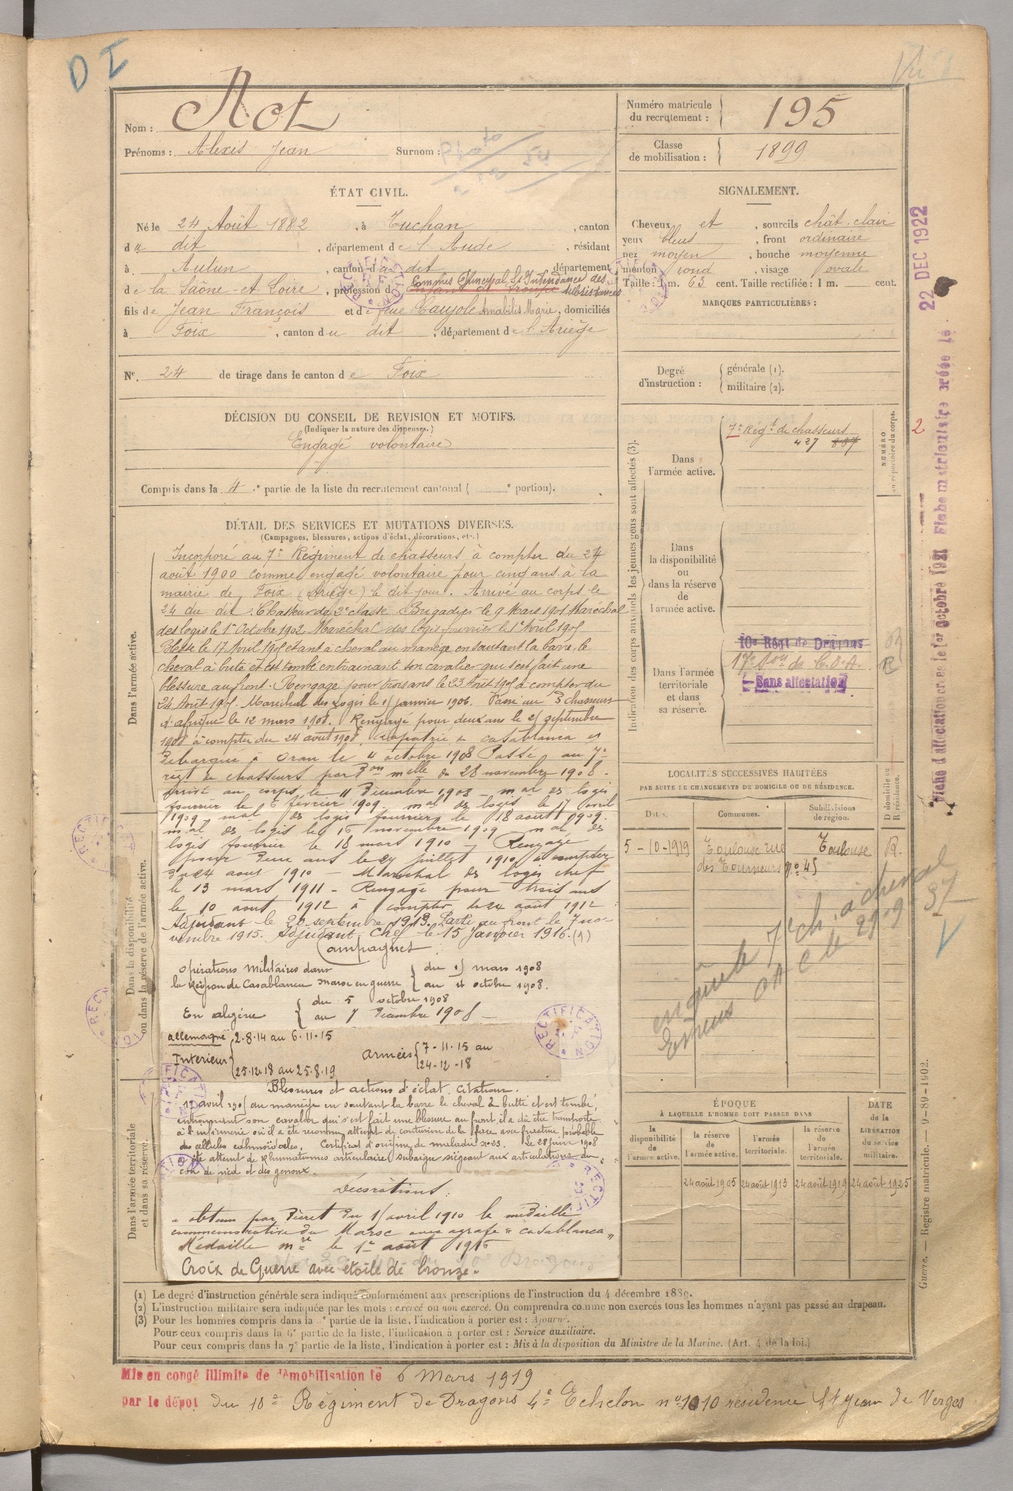 D I
Vu
Nom : Act
Prénoms : Alexis Jean Surnom :
Numéro matricule du recrutement : 195
Classe de mobilisation : 1899
ÉTAT CIVIL.
Né le 24 Août 1882, à Tuchan, canton
du dit, département de l'Aude, résidant
à Autun, canton du dit, département
de la Saône-et-Loire, profession de Commis Principal St Intendance des subsistances
fils de Jean François et de feue Caujole Amabilis Marie, domiciliés
à Foix, canton du dit, département de l'Ariège
N° 24 de tirage dans le canton de Foix
SIGNALEMENT.
Cheveux et, sourcils chât. clair
yeux bleus, front ordinaire
nez moyen, bouche moyenne
menton rond, visage ovale
Taille : 1 m. 63 cent. Taille rectifiée : 1 m. cent.
MARQUES PARTICULIÈRES :
Degré d'instruction : générale (1).
militaire (2).
DÉCISION DU CONSEIL DE REVISION ET MOTIFS.
(Indiquer la nature des dispenses.)
Engagé volontaire
Compris dans la 4e partie de la liste du recrutement cantonal ( e portion).
DÉTAIL DES SERVICES ET MUTATIONS DIVERSES.
(Campagnes, blessures, actions d'éclat, décorations, etc.)
Dans l'armée active.
Dans la disponibilité ou dans la réserve de l'armée active.
Dans l'armée territoriale et dans sa réserve.
Incorporé au 7e Régiment de chasseurs à compter du 24
août 1900 comme engagé volontaire pour cinq ans à la
mairie de Foix (Ariège) le dit jour. Arrivé au corps le
24 du dit. Chasseur de 2e classe. Brigadier le 9 Mars 1901 Maréchal
des logis le 1er Octobre 1902. Maréchal des logis fourrier le 1er Avril 1905
Blessé le 17 Avril 1905 étant à cheval au manège en sautant la barre, le
cheval a buté et est tombé entraînant son cavalier qui s'est fait une
blessure au front. Rengagé pour trois ans le 23 Août 1905 à compter du
24 Août 1905. Maréchal des logis le 1er janvier 1906. Passé au 3e chasseurs
d'afrique le 12 mars 1908. Rengagé pour deux ans le 25 septembre
1908 à compter du 24 août 1908. rapatrié de casablanca et
débarqué à Oran le 4 octobre 1908 Passé au 7e
régt de chasseurs par Don melle du 28 novembre 1908.
arrivé au corps le 11 Décembre 1908 - mal des logis
fourrier le 1er février 1909. mal des logis le 17 avril
1909. mal des logis fourrier le 18 aout 1909.
mal des logis le 16 novembre 1909 mal des
logis fourrier le 18 mars 1910 - Rengagé
pour deux ans le 24 juillet 1910 à compter
du 24 aout 1910 - Maréchal des logis chef
le 13 mars 1911 - Rengagé pour trois ans
le 10 aout 1912 à compter du 24 aout 1912
Adjudant le 26 septembre 1913. Parti au front le 7 no-
vembre 1915. Adjudant Chef le 15 Janvier 1916. (1)
Campagnes
Opérations militaires dans la Région de Casablanca maroc en guerre du 15 mars 1908
au 4 octobre 1908.
En algérie du 5 octobre 1908
au 7 Décembre 1908
allemagne 2-8-14 au 6-11-15
Intérieur 25-12-18 au 25-8-19
Armées 7-11-15 au 24-12-18
Blessures et actions d'éclat, Citations.
17 avril 1905 au manège en sautant la barre le cheval a butté et est tombé
entraînant son cavalier qui s'est fait une blessure au front il a été transporté
à l'infirmerie où il a été reconnu atteint de contusion de la face avec fracture probable
Certificat d'origine de maladie n° 3. Le 28 juin 1908
été atteint de Rhumatismes articulaire subaigüe siégeant aux articulations du
cou de pied et des genoux.
Décorations.
a obtenu par Décret du 15 avril 1910 la médaille
commémorative du Maroc avec agrafe « casablanca »
Médaille mre le 1er août 1916
Croix de Guerre avec étoile de bronze.
Indication des corps auxquels les jeunes gens sont affectés (3).
Dans l'armée active.
7e Régt de chasseurs
427
NUMÉRO au répertoire du corps.
2
Dans la disponibilité ou dans la réserve de l'armée active.
Dans l'armée territoriale et dans sa réserve.
10e Régt de Dragons
17e Son de C.O.A.
Sans affectation
R
LOCALITÉS SUCCESSIVES HABITÉES
PAR SUITE DE CHANGEMENTS DE DOMICILE OU DE RÉSIDENCE.
Dates. Communes. Subdivisions de région. D domicile ou R résidence.
5-10-1919 Toulouse rue Toulouse R.
des Tourneurs n° 45
ÉPOQUE
À LAQUELLE L'HOMME DOIT PASSER DANS
DATE de la LIBÉRATION du service militaire.
la disponibilité de l'armée active.
la réserve de l'armée active.
l'armée territoriale.
la réserve de l'armée territoriale.
24 août 1905 24 août 1913 24 août 1919 24 août 1925
22 DEC 1922
RECTIFICATION
Guerre. — Registre matricule. — 9-89-1902.
(1) Le degré d'instruction générale sera indiqué conformément aux prescriptions de l'instruction du 4 décembre 1889.
(2) L'instruction militaire sera indiquée par les mots : exercé ou non exercé. On comprendra comme non exercés tous les hommes n'ayant pas passé au drapeau.
(3) Pour les hommes compris dans la e partie de la liste, l'indication à porter est : Ajourné.
Pour ceux compris dans la 6e partie de la liste, l'indication à porter est : Service auxiliaire.
Pour ceux compris dans la 7e partie de la liste, l'indication à porter est : Mis à la disposition du Ministre de la Marine. (Art. 4 de la loi.)
Mis en congé illimité de démobilisation le 6 Mars 1919
par le dépôt du 18e Régiment de Dragons 4e Echelon n° 1010 résidence St Jean de Verges